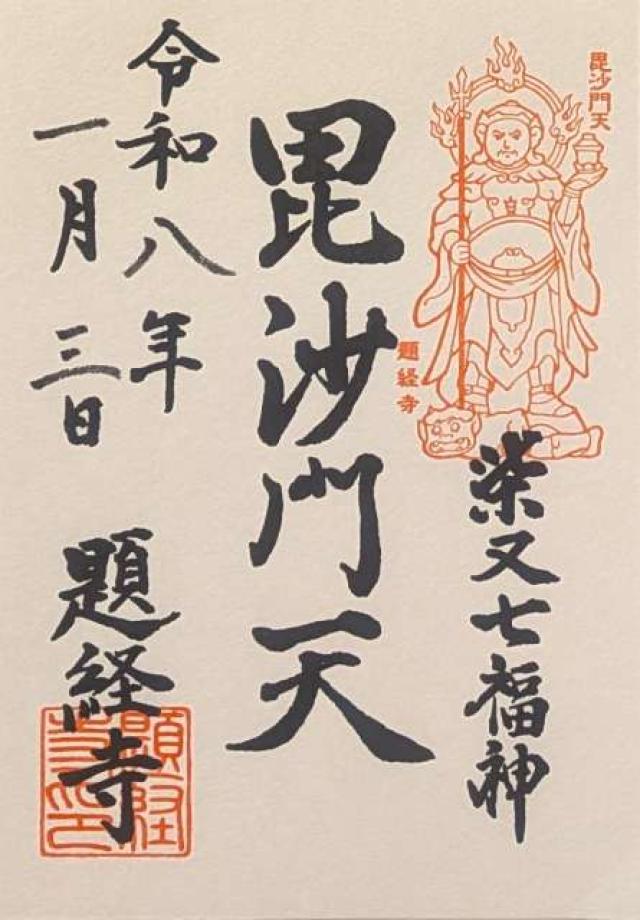 毘沙門天
題経寺
柴又七福神
毘沙門天
令和八年
一月三日
題経寺